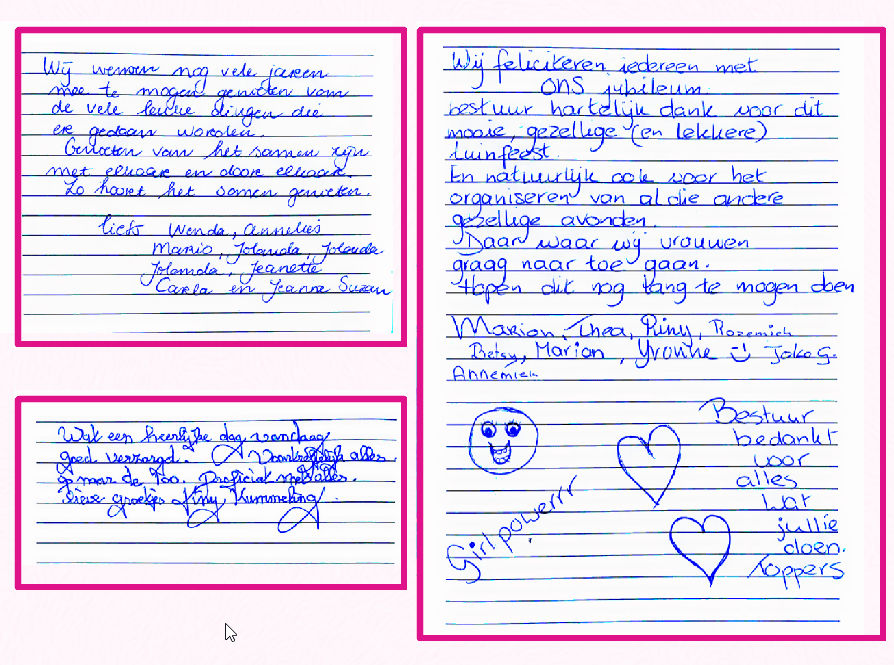 Wij wensen nog vele jaren
mee te mogen genieten van
de vele leuke dingen die
er gedaan worden.
Genieten van het samen zijn
met elkaar en door elkaar.
Zo hoort het samen genieten.
liefs Wenda, Annelies
Mario, Jolanda, Jolanda
Jolanda, Jeanette
Carla en Jeanne Suzan
Wat een heerlijke dag vandaag
goed verzorgd. alles
op naar de 100. Proficiat met alles.
Lieve groetjes Tiny Kummeling.
Wij feliciteren iedereen met
ONS jubileum.
bestuur hartelijk dank voor dit
mooie, gezellige (en lekkere)
tuinfeest.
En natuurlijk ook voor het
organiseren van al die andere
gezellige avonden.
Daar waar wij vrouwen
graag naar toe gaan.
Hopen dit nog lang te mogen doen
Marion, Thea, Riny, Rozemich
Betsy, Marion, Yvonne Joke G.
Annemiek
Bestuur
bedankt
voor
alles
wat
jullie
doen.
Toppers
Girlpowerrr